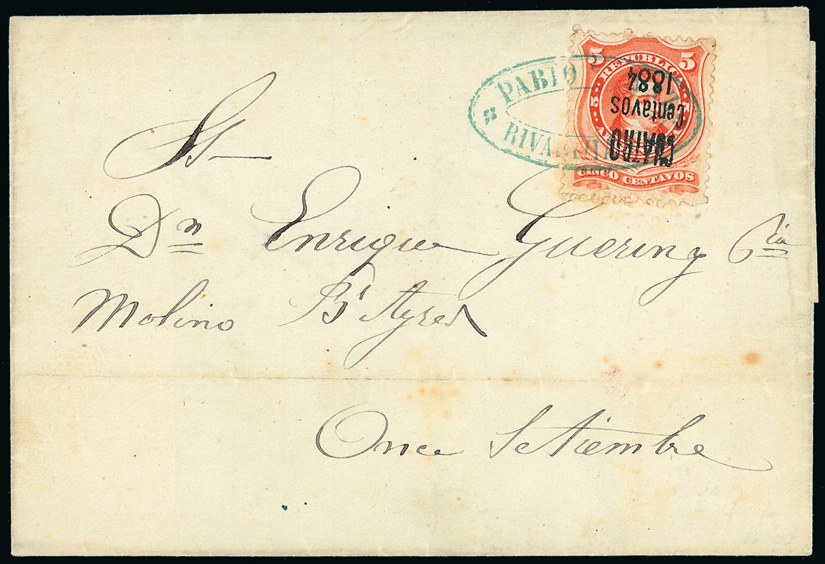 PABLO
RIVA
5 REPUBLICA 5
5
1884
Centavos
CUATRO
CINCO CENTAVOS
Sr
Dn Enrique Guering Cia
Molino Bs Ayres
Once Setiembre